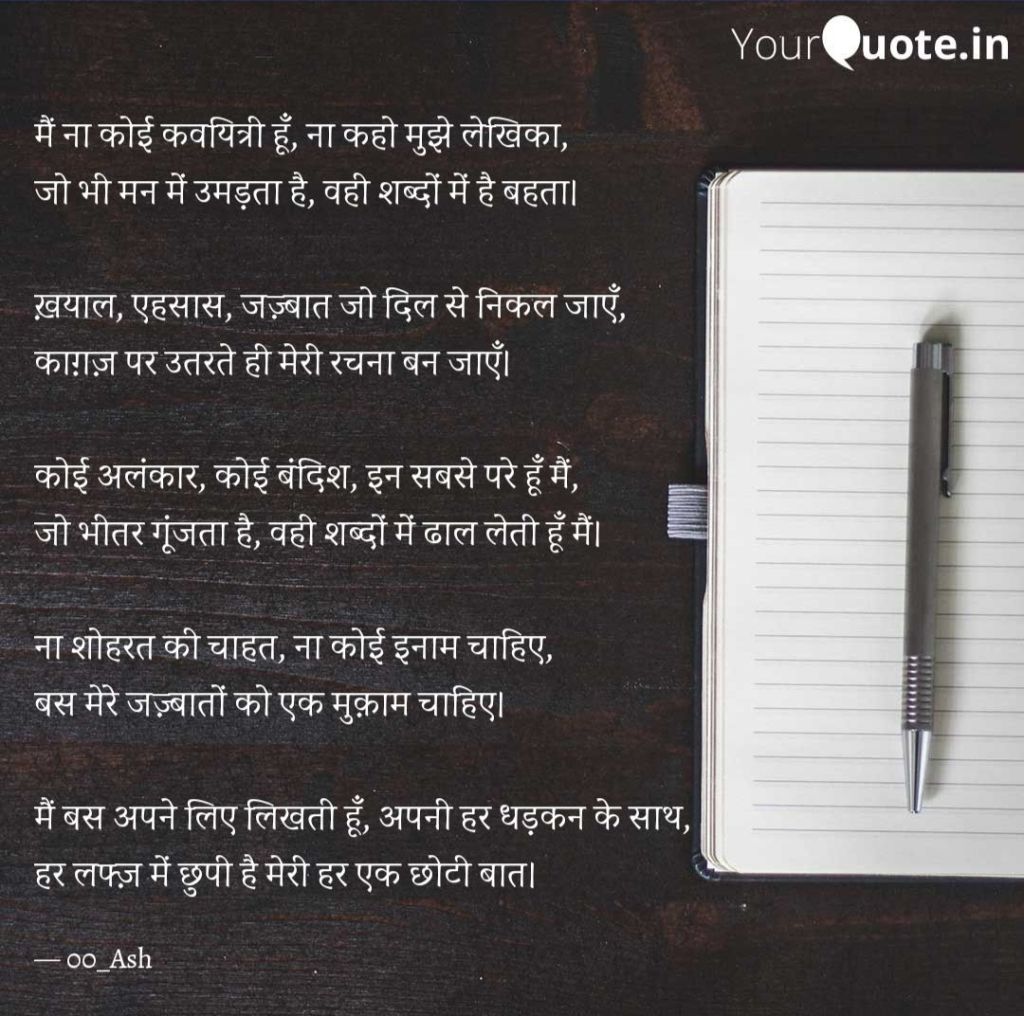 YourQuote.in
मैं ना कोई कवयित्री हूँ, ना कहो मुझे लेखिका,
जो भी मन में उमड़ता है, वही शब्दों में है बहता।
ख़याल, एहसास, जज़्बात जो दिल से निकल जाएँ,
काग़ज़ पर उतरते ही मेरी रचना बन जाएँ।
कोई अलंकार, कोई बंदिश, इन सबसे परे हूँ मैं,
जो भीतर गूंजता है, वही शब्दों में ढाल लेती हूँ मैं।
ना शोहरत की चाहत, ना कोई इनाम चाहिए,
बस मेरे जज़्बातों को एक मुक़ाम चाहिए।
मैं बस अपने लिए लिखती हूँ, अपनी हर धड़कन के साथ,
हर लफ्ज़ में छुपी है मेरी हर एक छोटी बात।
— 00_Ash